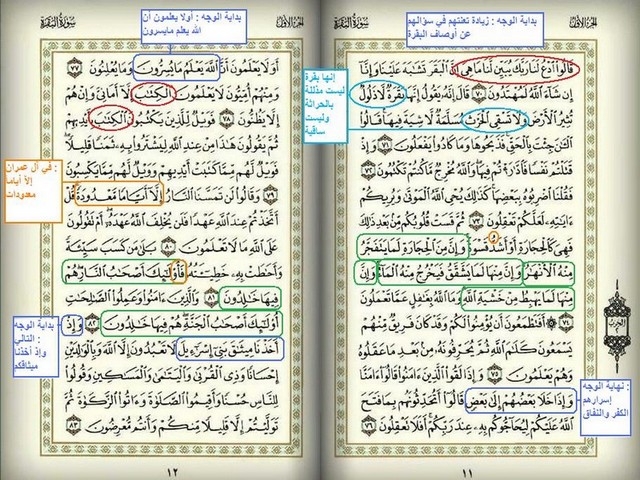 الجزء الأول
سورة البقرة
بداية الوجه : زيادة تعنتهم في سؤالهم
عن أوصاف البقرة
قَالُوا۟ ٱدْعُ لَنَا رَبَّكَ يُبَيِّن لَّنَا مَا هِىَ إِنَّ ٱلْبَقَرَ تَشَٰبَهَ عَلَيْنَا وَإِنَّآ
إِن شَآءَ ٱللَّهُ لَمُهْتَدُونَ ٧٠ قَالَ إِنَّهُۥ يَقُولُ إِنَّهَا بَقَرَةٌ لَّا ذَلُولٌ
تُثِيرُ ٱلْأَرْضَ وَلَا تَسْقِى ٱلْحَرْثَ مُسَلَّمَةٌ لَّا شِيَةَ فِيهَا قَالُوا۟
ٱلْـَٰٔنَ جِئْتَ بِٱلْحَقِّ فَذَبَحُوهَا وَمَا كَادُوا۟ يَفْعَلُونَ ٧١ وَإِذْ
قَتَلْتُمْ نَفْسًا فَٱدَّٰرَْٰٔتُمْ فِيهَا وَٱللَّهُ مُخْرِجٌ مَّا كُنتُمْ تَكْتُمُونَ ٧٢
فَقُلْنَا ٱضْرِبُوهُ بِبَعْضِهَا كَذَٰلِكَ يُحْىِ ٱللَّهُ ٱلْمَوْتَىٰ وَيُرِيكُمْ
ءَايَٰتِهِۦ لَعَلَّكُمْ تَعْقِلُونَ ٧٣ ثُمَّ قَسَتْ قُلُوبُكُم مِّنۢ بَعْدِ ذَٰلِكَ
فَهِىَ كَٱلْحِجَارَةِ أَوْ أَشَدُّ قَسْوَةً وَإِنَّ مِنَ ٱلْحِجَارَةِ لَمَا يَتَفَجَّرُ
مِنْهُ ٱلْأَنْهَٰرُ وَإِنَّ مِنْهَا لَمَا يَشَّقَّقُ فَيَخْرُجُ مِنْهُ ٱلْمَآءُ وَإِنَّ
مِنْهَا لَمَا يَهْبِطُ مِنْ خَشْيَةِ ٱللَّهِ وَمَا ٱللَّهُ بِغَٰفِلٍ عَمَّا تَعْمَلُونَ
٧٤ ۞ أَفَتَطْمَعُونَ أَن يُؤْمِنُوا۟ لَكُمْ وَقَدْ كَانَ فَرِيقٌ مِّنْهُمْ
يَسْمَعُونَ كَلَٰمَ ٱللَّهِ ثُمَّ يُحَرِّفُونَهُۥ مِنۢ بَعْدِ مَا عَقَلُوهُ
وَهُمْ يَعْلَمُونَ ٧٥ وَإِذَا لَقُوا۟ ٱلَّذِينَ ءَامَنُوا۟ قَالُوٓا۟ ءَامَنَّا
وَإِذَا خَلَا بَعْضُهُمْ إِلَىٰ بَعْضٍ قَالُوٓا۟ أَتُحَدِّثُونَهُم بِمَا فَتَحَ
ٱللَّهُ عَلَيْكُمْ لِيُحَآجُّوكُم بِهِۦ عِندَ رَبِّكُمْ أَفَلَا تَعْقِلُونَ ٧٦
١١
إنها بقرة
ليست مذللة
بالحراثة
وليست
ساقية
الحزب
نهاية الوجه :
إسرارهم
الكفر والنفاق
الجزء الأول
سورة البقرة
بداية الوجه : أولا يعلمون أن
الله يعلم مايسرون
أَوَلَا يَعْلَمُونَ أَنَّ ٱللَّهَ يَعْلَمُ مَا يُسِرُّونَ وَمَا يُعْلِنُونَ ٧٧
وَمِنْهُمْ أُمِّيُّونَ لَا يَعْلَمُونَ ٱلْكِتَٰبَ إِلَّآ أَمَانِىَّ وَإِنْ هُمْ
إِلَّا يَظُنُّونَ ٧٨ فَوَيْلٌ لِّلَّذِينَ يَكْتُبُونَ ٱلْكِتَٰبَ بِأَيْدِيهِمْ
ثُمَّ يَقُولُونَ هَٰذَا مِنْ عِندِ ٱللَّهِ لِيَشْتَرُوا۟ بِهِۦ ثَمَنًا قَلِيلًا
فَوَيْلٌ لَّهُم مِّمَّا كَتَبَتْ أَيْدِيهِمْ وَوَيْلٌ لَّهُم مِّمَّا يَكْسِبُونَ
٧٩ وَقَالُوا۟ لَن تَمَسَّنَا ٱلنَّارُ إِلَّآ أَيَّامًا مَّعْدُودَةً قُلْ
أَتَّخَذْتُمْ عِندَ ٱللَّهِ عَهْدًا فَلَن يُخْلِفَ ٱللَّهُ عَهْدَهُۥٓ أَمْ تَقُولُونَ
عَلَى ٱللَّهِ مَا لَا تَعْلَمُونَ ٨٠ بَلَىٰ مَن كَسَبَ سَيِّئَةً
وَأَحَٰطَتْ بِهِۦ خَطِيٓـَٔتُهُۥ فَأُو۟لَٰٓئِكَ أَصْحَٰبُ ٱلنَّارِ هُمْ
فِيهَا خَٰلِدُونَ ٨١ وَٱلَّذِينَ ءَامَنُوا۟ وَعَمِلُوا۟ ٱلصَّٰلِحَٰتِ
أُو۟لَٰٓئِكَ أَصْحَٰبُ ٱلْجَنَّةِ هُمْ فِيهَا خَٰلِدُونَ ٨٢ وَإِذْ
أَخَذْنَا مِيثَٰقَ بَنِىٓ إِسْرَٰٓءِيلَ لَا تَعْبُدُونَ إِلَّا ٱللَّهَ وَبِٱلْوَٰلِدَيْنِ
إِحْسَانًا وَذِى ٱلْقُرْبَىٰ وَٱلْيَتَٰمَىٰ وَٱلْمَسَٰكِينِ وَقُولُوا۟
لِلنَّاسِ حُسْنًا وَأَقِيمُوا۟ ٱلصَّلَوٰةَ وَءَاتُوا۟ ٱلزَّكَوٰةَ ثُمَّ
تَوَلَّيْتُمْ إِلَّا قَلِيلًا مِّنكُمْ وَأَنتُم مُّعْرِضُونَ ٨٣
١٢
في آل عمران :
إلا أياما
معدودات
بداية الوجه
التالي :
وإذ أخذنا
ميثاقكم